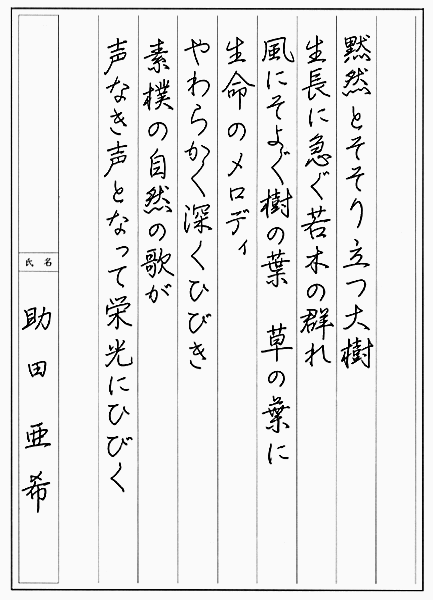 黙然とそそり立つ大樹
生長に急ぐ若木の群れ
風にそよぐ樹の葉　草の葉に
生命のメロディ
やわらかく深くひびき
素樸の自然の歌が
声なき声となって栄光にひびく
氏名
助田亜希